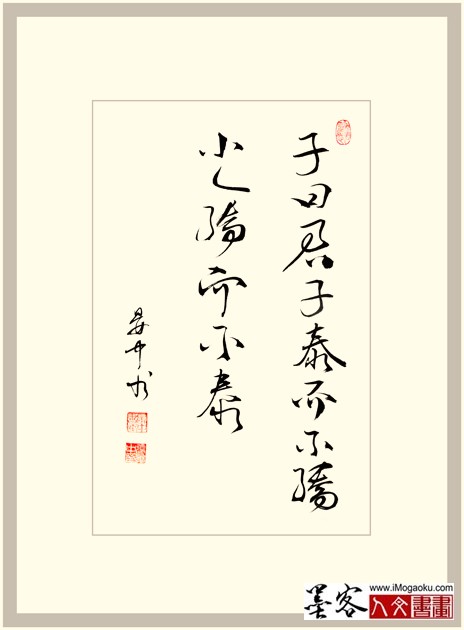 子曰君子泰而不驕
小人驕而不泰
墨客
www.iMogaoku.com
人文書畫